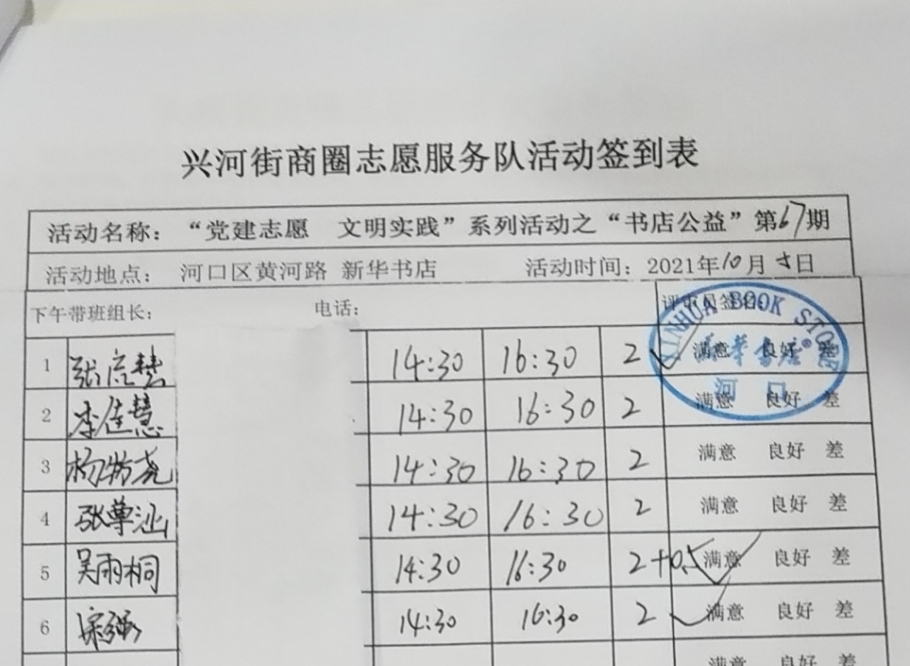 兴河街商圈志愿服务队活动签到表
活动名称：“党建志愿 文明实践”系列活动之“书店公益”第67期
活动地点： 河口区黄河路 新华书店 活动时间：2021年10月5日
下午带班组长： 电话： 评审员签名
XINHUA BOOK STORE
新华书店
河口
1 14:30 16:30 2 满意 良好 差
2 李佳慧 14:30 16:30 2 满意 良好 差
3 14:30 16:30 2 满意 良好 差
4 14:30 16:30 2 满意 良好 差
5 吴雨桐 14:30 16:30 2+0.5 满意 良好 差
6 14:30 16:30 2 满意 良好 差
满意 良好 差